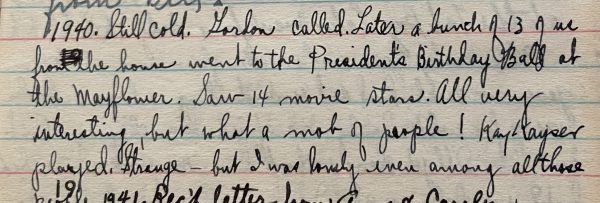 from
1940. Still cold. Gordon called. Later a bunch of 13 of us
from the house went to the President's Birthday Ball at
the Mayflower. Saw 14 movie stars. All very
interesting, but what a mob of people! Kay Kayser
played. Strange – but I was lonely even among all those
people. 1941. Rec'd letter from